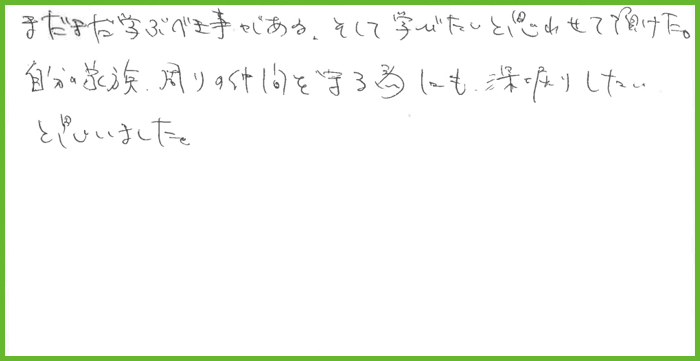 まだまだ学ぶべき事がある。そして学びたいと思わせて頂けた。
自分の家族、周りの仲間を守る為にも、深堀りしたい
と思いました。